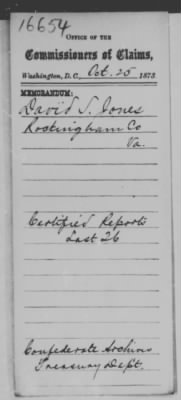 16654
OFFICE OF THE
Commissioners of Claims,
Washington, D.C., Oct. 25 1873
MEMORANDUM:
David S. Jones
Rockingham Co
Va.
Certified Reports
Last 26
Confederate Archives
Treasury Dept.